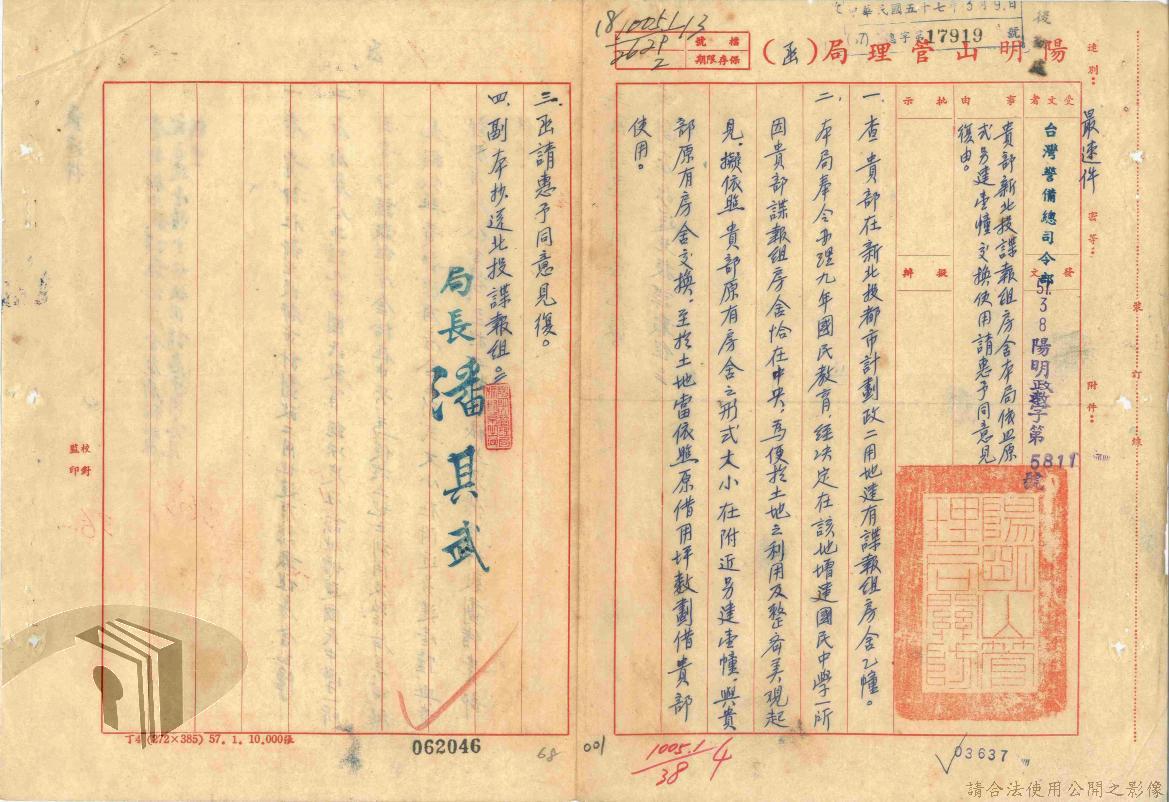 中華民國五十七年3月9日
總字第17919號
陽明山管理局(函)
檔號
保存期限
1005.1-13
2629
2
速別：
最速件
密等：
附件：
裝
訂
線
受文者
台灣警備總司令部
發文
57.3 8 陽明政字第
5811
號
事由
貴部新北投諜報組房舍本局依照原
式另建壹幢交換使用請惠予同意見
復由。
批示
擬辦
一、查貴部在新北投都市計劃政二用地建有諜報組房舍乙幢。
二、本局奉令办理九年國民教育，經決定在該地增建國民中學一所
因貴部諜報組房舍恰在中央，為便於土地之利用及整齊美現起
見，擬依照貴部原有房舍之形式大小在附近另建壹幢，與貴
部原有房舍交換，至於土地當依照原借用坪數劃借貴部
使用。
三、函請惠予同意見復。
四、副本抄送北投諜報組。
局長潘其武
監印
校對
丁4(272×385) 57. 1. 10,000張
062046
68
001
1005.1
38
4
03637
請合法使用公開之影像